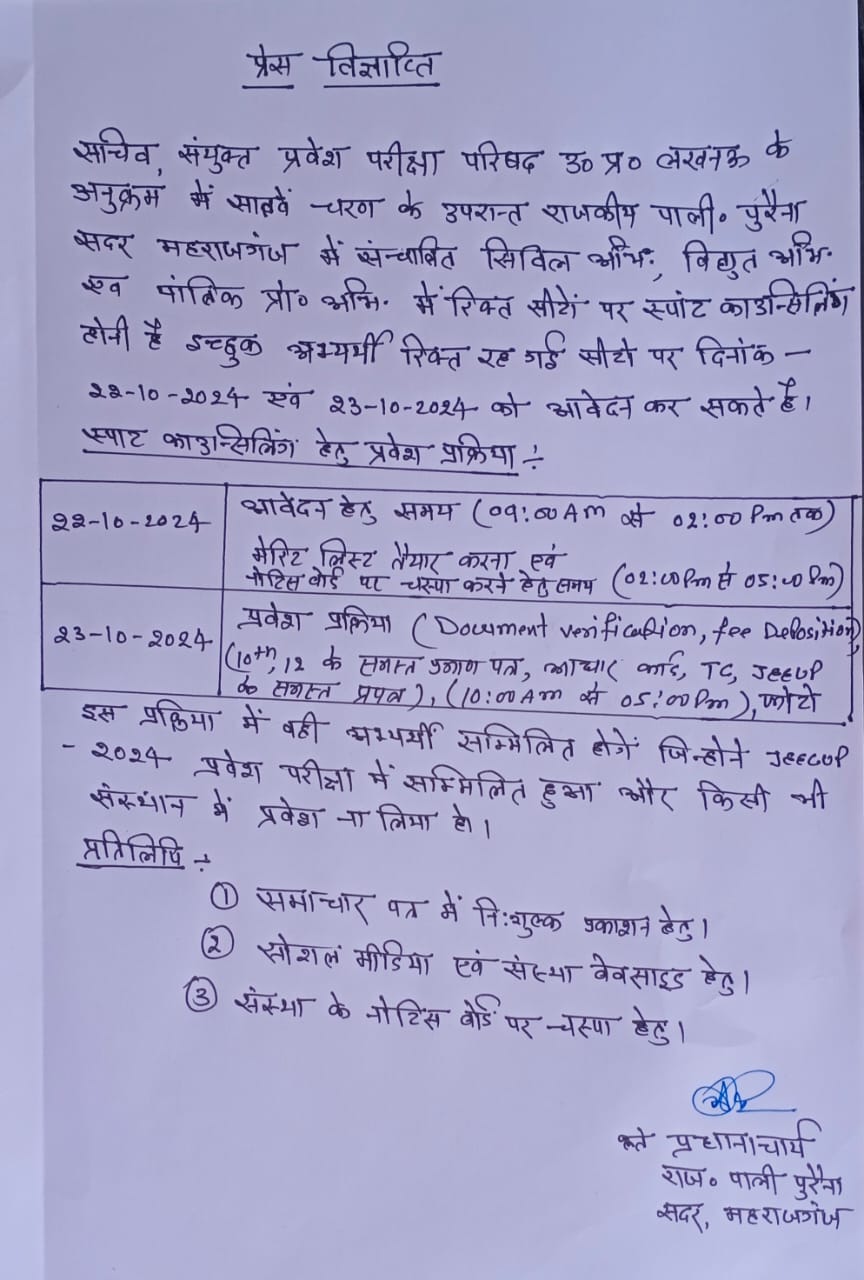 प्रेस विज्ञप्ति
सचिव, संयुक्त प्रवेश परीक्षा परिषद उ० प्र० लखनऊ के
अनुक्रम में सातवें चरण के उपरान्त राजकीय पाली० पुरैना
सदर महराजगंज में संन्चालित सिविल अभि०, विद्युत अभि०
एव यांत्रिक प्रो० अभि० में रिक्त सीटों पर स्पांट काउन्सिलिंग
होनी है इच्छुक अभ्यर्थी रिक्त रह गई सीटो पर दिनांक -
22-10-2024 एवं 23-10-2024 को आवेदन कर सकते है।
स्पाट काउन्सिलिंग हेतु प्रवेश प्रक्रिया :-
22-10-2024
आवेदन हेतु समय (09:00Am से 02:00 Pm तक)
मेरिट लिस्ट तैयार करना एवं
नोटिस बोर्ड पर चस्पा करने हेतु समय (02:00Pm से 05:00 Pm)
23-10-2024
प्रवेश प्रक्रिया (Document verification, fee Deposition),
(10th, 12 के समस्त प्रमाण पत्र, आधार कार्ड, TC, JEEUP
के समस्त प्रपत्र), (10:00Am से 05:00Pm), फोटो
इस प्रक्रिया में वही अभ्यर्थी सम्मिलित होगें जिन्होने JEECUP
- 2024 प्रवेश परीक्षा में सम्मिलित हुआ और किसी भी
संस्थान में प्रवेश ना लिया हो।
प्रतिलिपि :-
① समाचार पत्र में नि:शुल्क प्रकाशन हेतु।
② सोशल मीडिया एवं संस्था वेवसाइड हेतु।
③ संस्था के नोटिस बोर्ड पर चस्पा हेतु।
कृते प्रधानाचार्य
राज० पाली पुरैना
सदर, महराजगंज